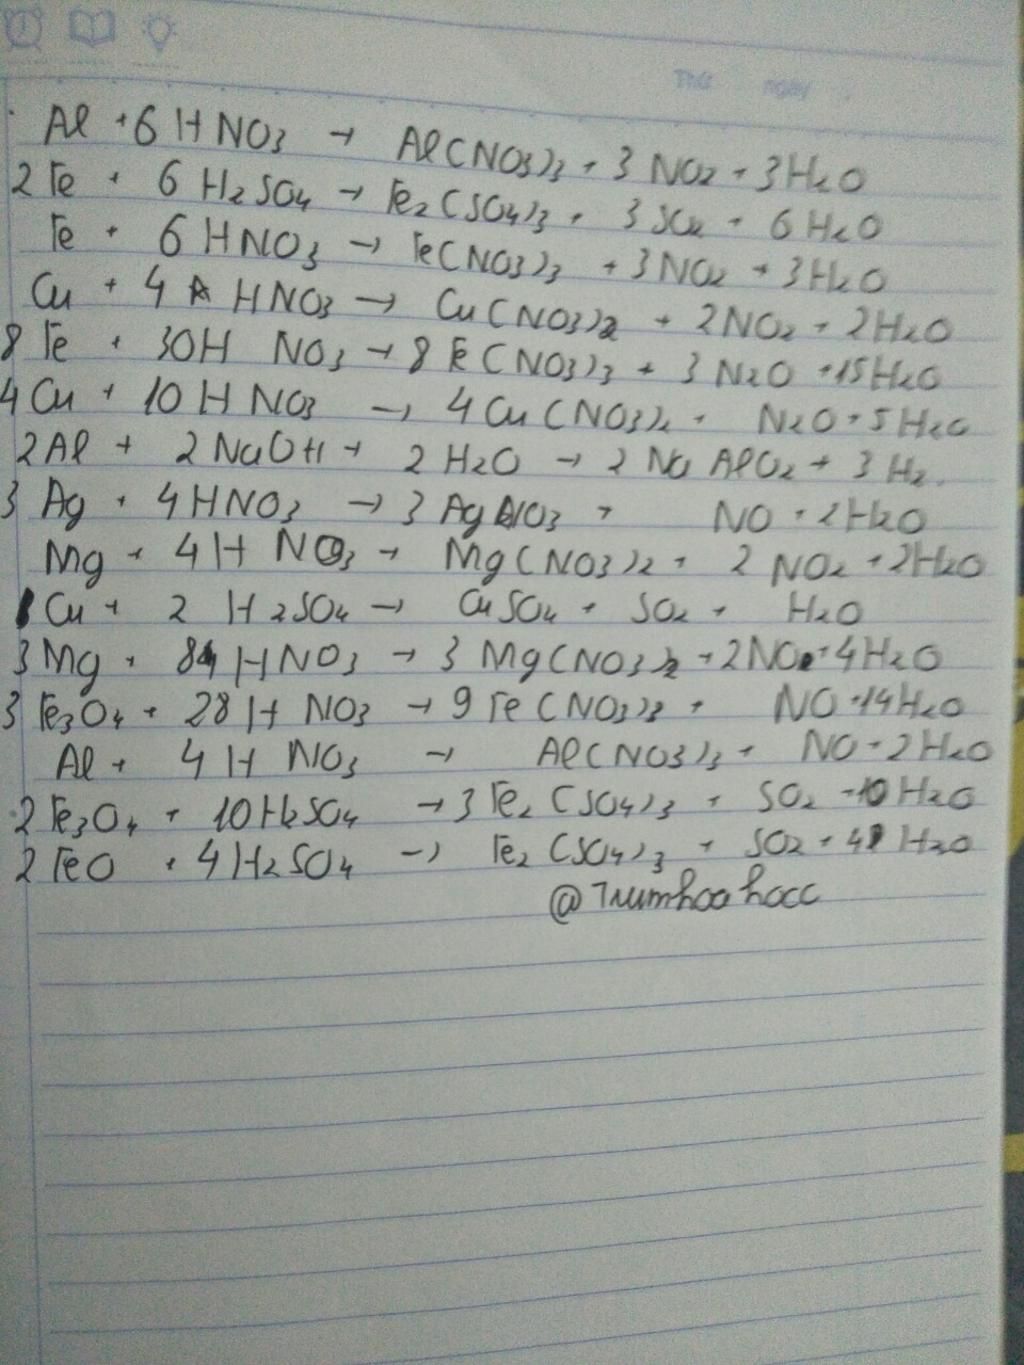 Thứ ngày
Al + 6 HNO3 → Al(NO3)3 + 3 NO2 + 3H2O
2 Fe + 6 H2SO4 → Fe2(SO4)3 + 3 SO2 + 6 H2O
Fe + 6 HNO3 → Fe(NO3)3 + 3NO2 + 3H2O
Cu + 4 HNO3 → Cu(NO3)2 + 2NO2 + 2H2O
8 Fe + 30H NO3 → 8 Fe(NO3)3 + 3 N2O + 15H2O
4Cu + 10 H NO3 → 4Cu(NO3)2 + N2O + 5H2O
2Al + 2NaOH + 2 H2O → 2 Na AlO2 + 3 H2.
3 Ag + 4HNO3 → 3 AgNO3 + NO + 2H2O
Mg + 4H NO3 → Mg(NO3)2 + 2 NO2 + 2H2O
Cu + 2 H2SO4 → CuSO4 + SO2 + H2O
3Mg + 8 HNO3 → 3 Mg(NO3)2 + 2NO + 4H2O
3 Fe3O4 + 28H NO3 → 9 Fe(NO3)3 + NO + 14H2O
Al + 4 H NO3 → Al(NO3)3 + NO + 2H2O
2 Fe3O4 + 10H2SO4 → 3 Fe2(SO4)3 + SO2 + 10 H2O
2 FeO + 4H2SO4 → Fe2(SO4)3 + SO2 + 4 H2O
@Trumhoahocc